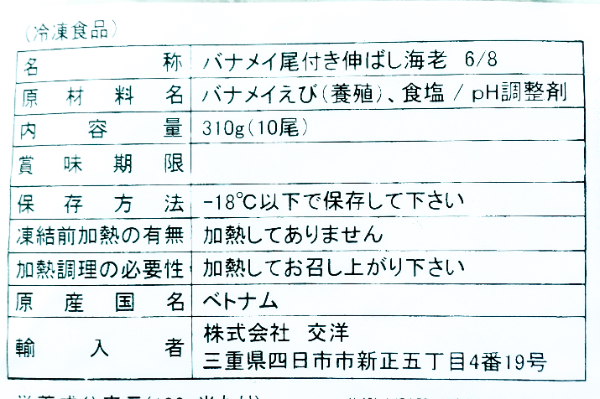 (冷凍食品)
名称 バナメイ尾付き伸ばし海老 6/8
原材料名 バナメイえび(養殖)、食塩 / pH調整剤
内容量 310g(10尾)
賞味期限
保存方法 -18℃以下で保存して下さい
凍結前加熱の有無 加熱してありません
加熱調理の必要性 加熱してお召し上がり下さい
原産国名 ベトナム
輸入者 株式会社 交洋
三重県四日市市新正五丁目4番19号